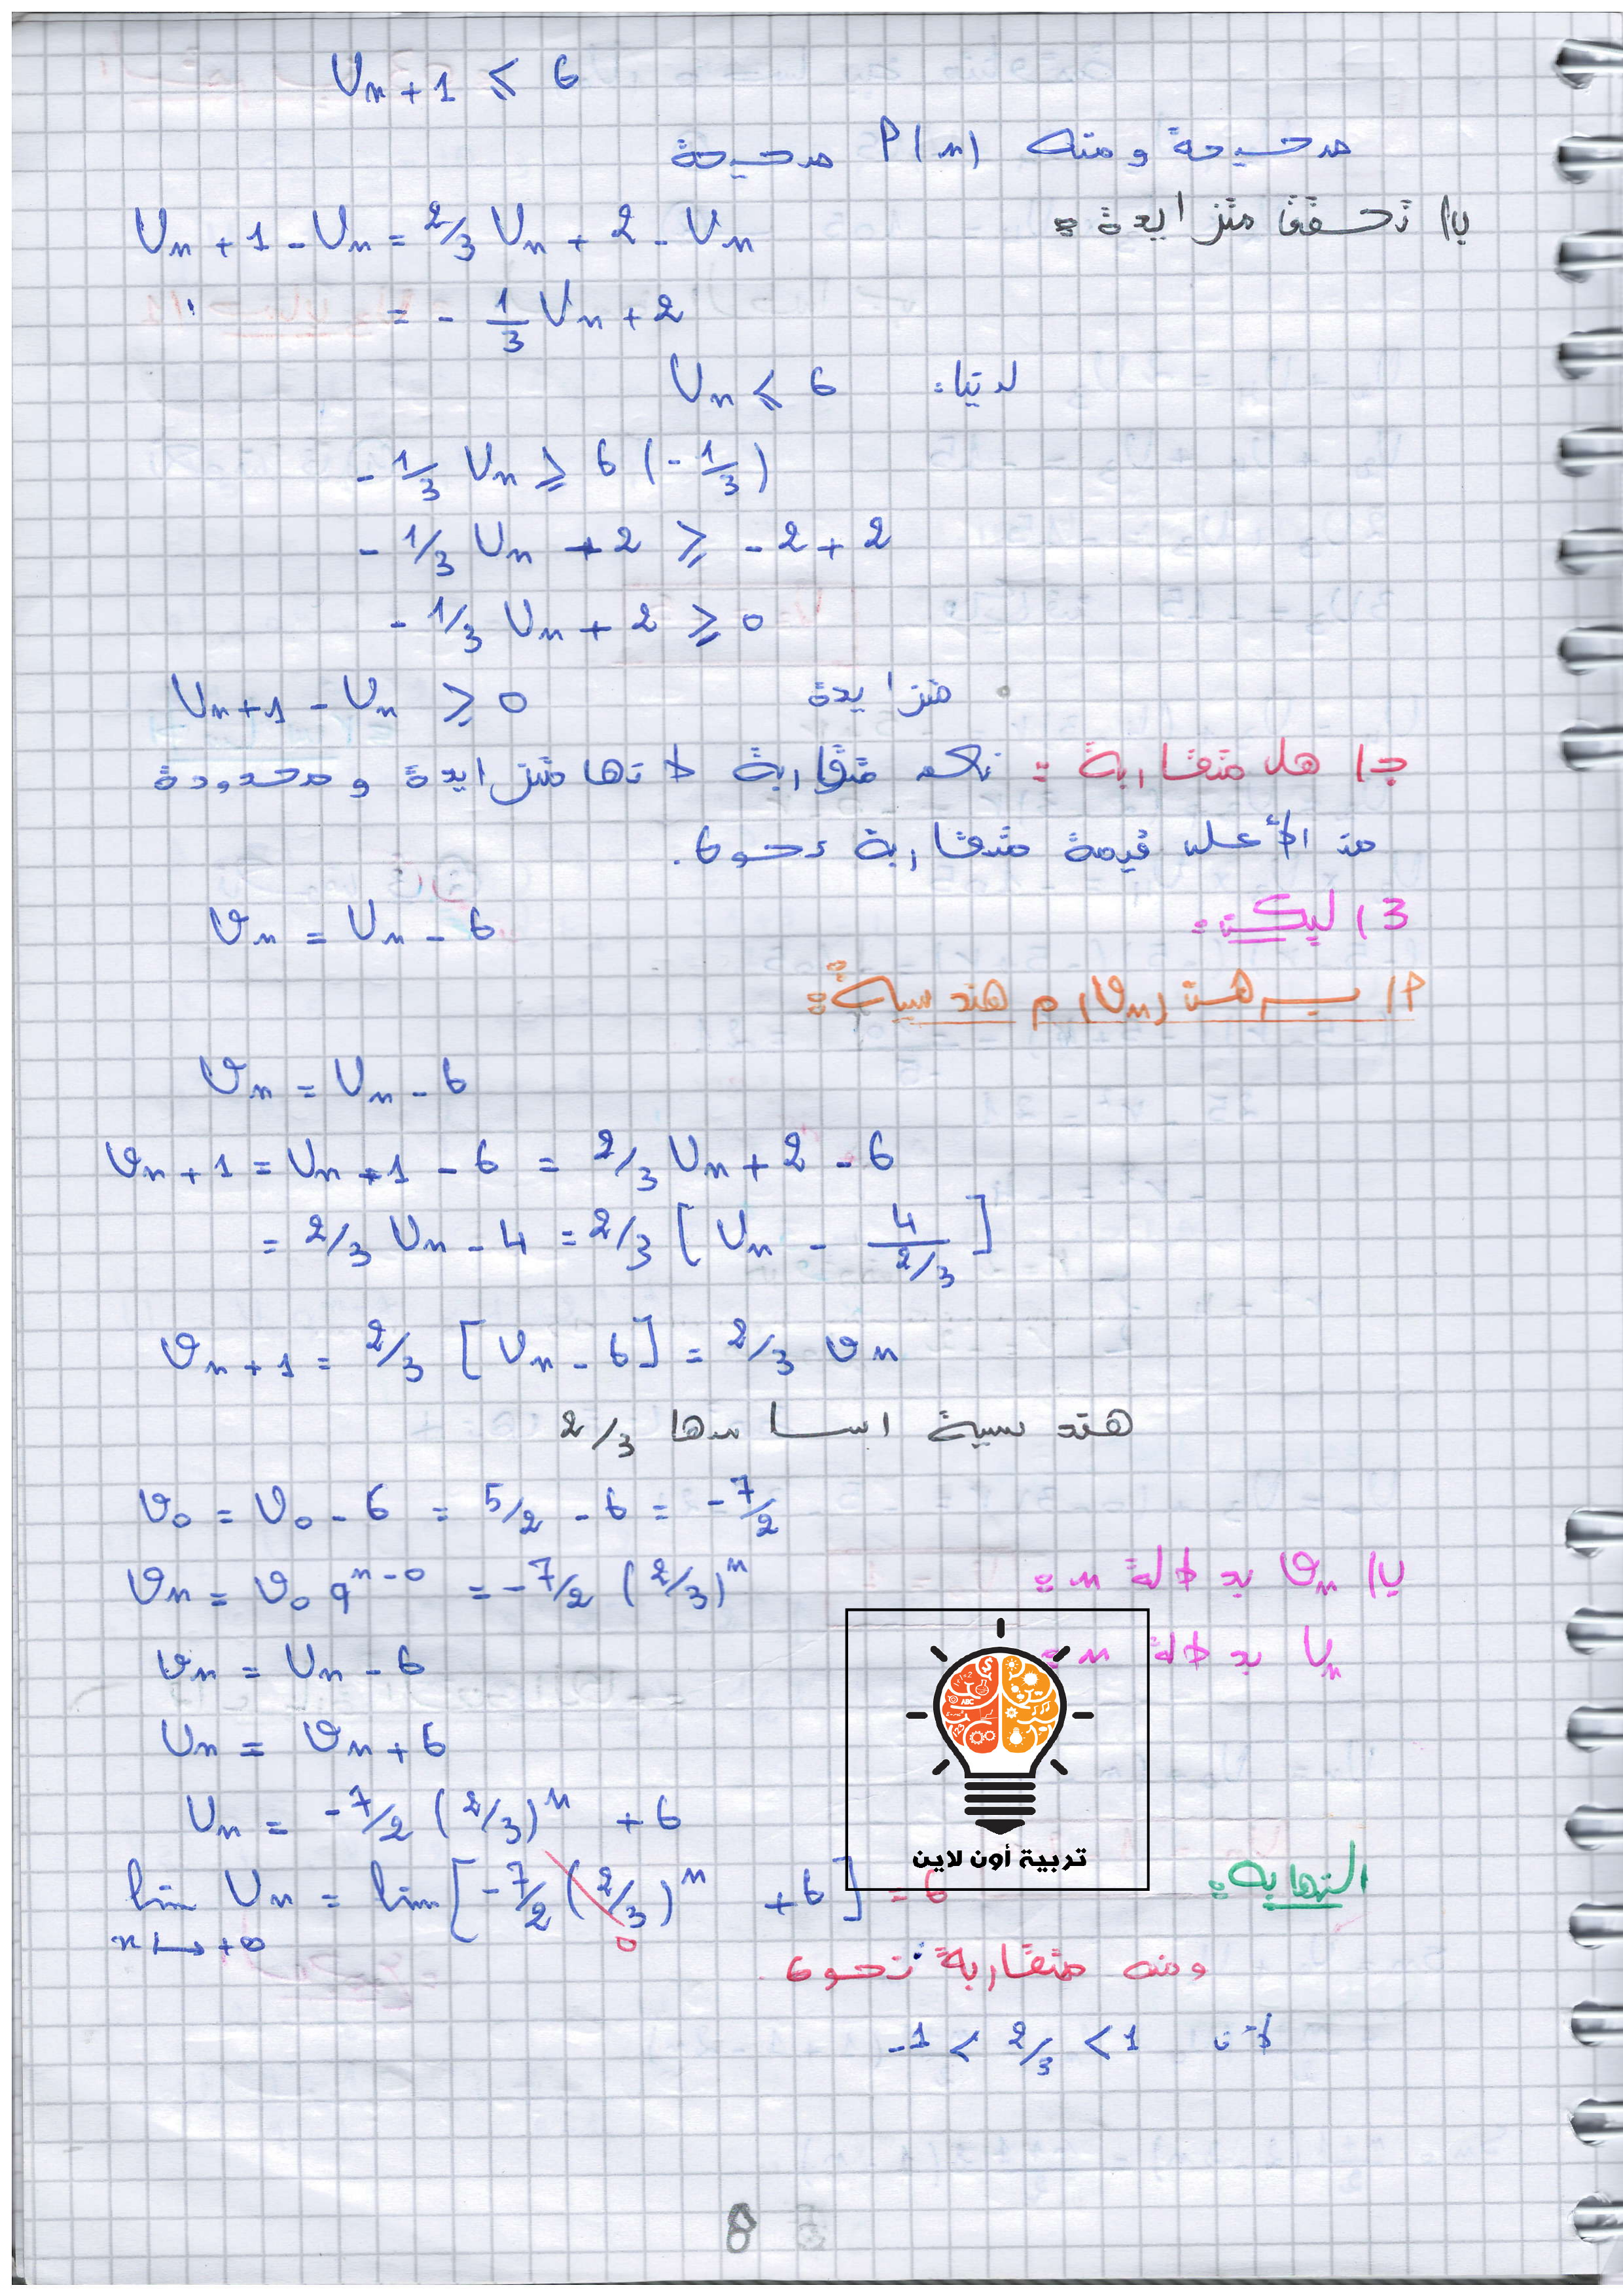 Un+1 ≤ 6
صحيحة ومنه P(n) صحيحة
ب/ تحقق متزايدة:
Un+1 - Un = 2/3 Un + 2 - Un
= - 1/3 Un + 2
لدينا: Un ≤ 6
- 1/3 Un ≥ 6 (- 1/3)
- 1/3 Un + 2 ≥ -2 + 2
- 1/3 Un + 2 ≥ 0
Un+1 - Un ≥ 0 متزايدة
ج/ هل متقاربة: نعم متقاربة لانها متزايدة ومحدودة
من الأعلى قيمة متقاربة نحو 6.
3) ليكن:
vn = Un - 6
P/ برهن (vn) م هندسية:
vn = Un - 6
vn+1 = Un+1 - 6 = 2/3 Un + 2 - 6
= 2/3 Un - 4 = 2/3 [Un - 4/(2/3)]
vn+1 = 2/3 [Un - 6] = 2/3 vn
هندسية اساسها 2/3
v0 = U0 - 6 = 5/2 - 6 = -7/2
ب/ vn بدلالة n:
vn = v0 q^(n-0) = -7/2 (2/3)^n
Un بدلالة n:
vn = Un - 6
Un = vn + 6
Un = -7/2 (2/3)^n + 6
تربية أون لاين
النهاية:
lim Un = lim [-7/2 (2/3)^n + 6] = 6
n → +∞ 0
ومنه متقاربة نحو 6.
لأن -1 < 2/3 < 1
8